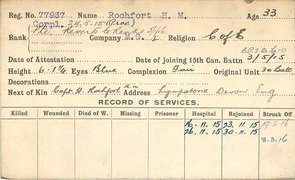 Reg. No. 77937 Name Rochfort H. M. Age 33
Corpl. 24.5.15
Rank Pte. Reverts to Ranks Company Religion C of E
Date of Attestation Date of joining 15th Can. Battn 31/5/15
Height 6-1½ Eyes Blue Complexion Original Unit 30 Battn
Next of Kin Capt. H. Rochfort Address Lympstone Devon Eng
RECORD OF SERVICES.
Killed Wounded Died of W. Missing Prisoner Hospital Rejoined Struck Off
16.11.15 23.11.15
26.11.15 30.11.15 8.3.16